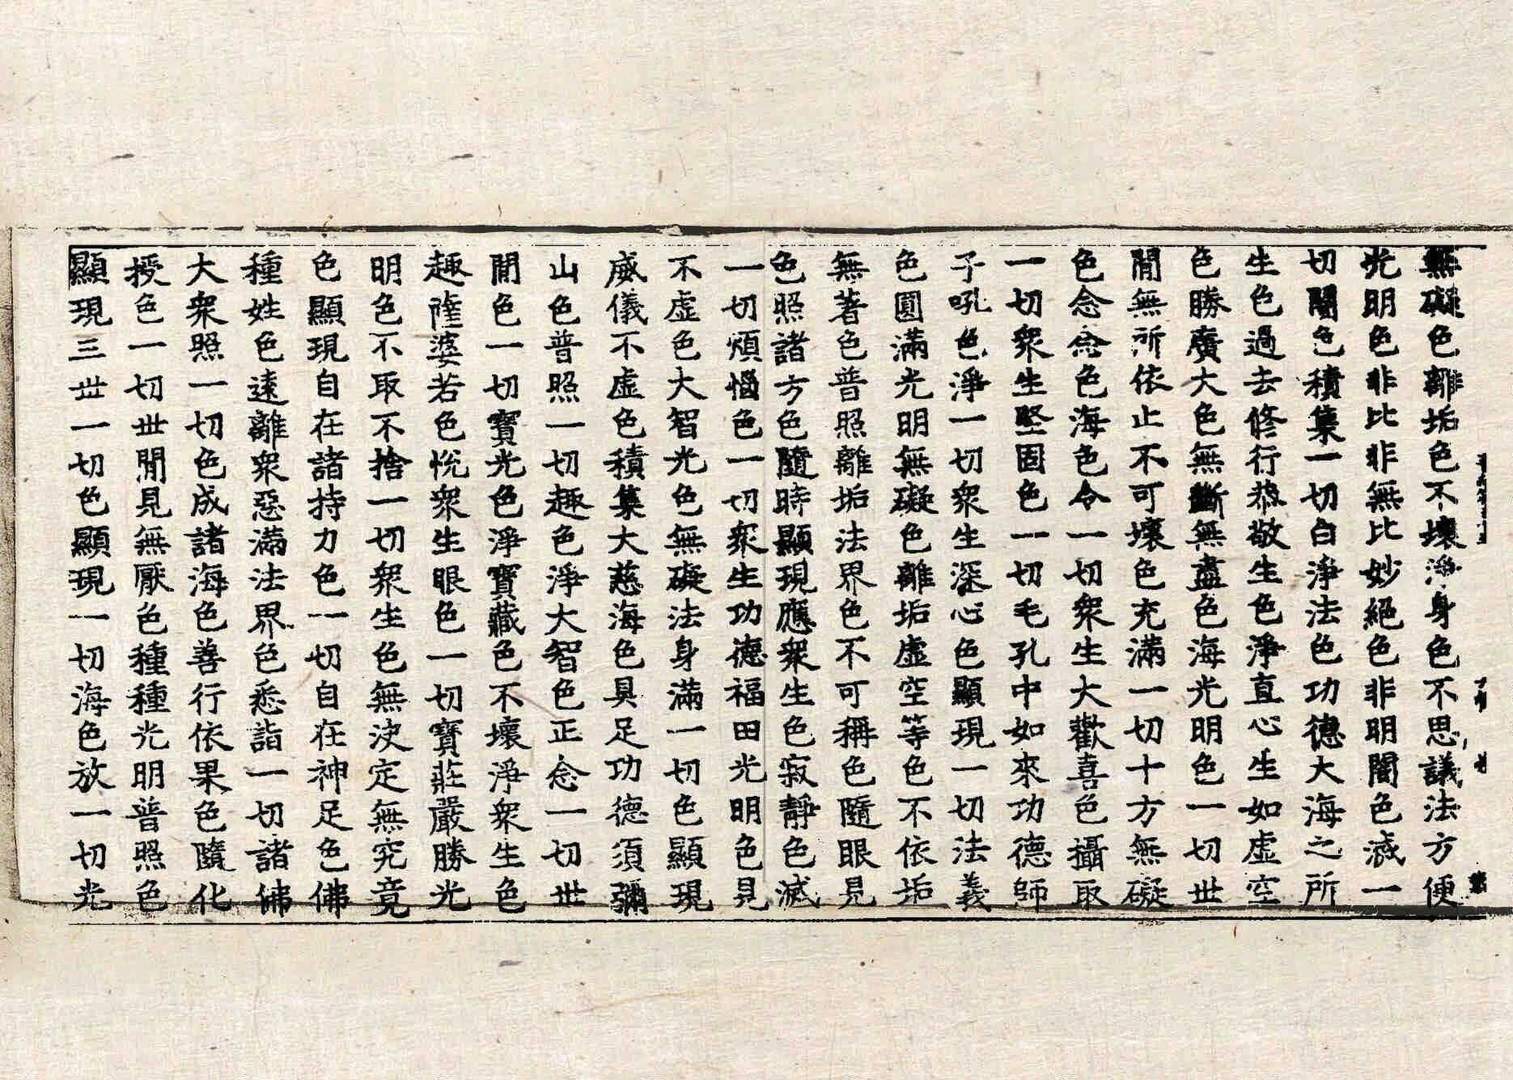 無礙色離垢色不壞淨身色不思議法方便
光明色非比非無比妙絕色非明闇色滅一
切闇色積集一切白淨法色功德大海之所
生色過去修行恭敬生色淨直心生如虛空
色勝廣大色無斷無盡色海光明色一切世
間無所依止不可壞色充滿一切十方無礙
色念念色海色令一切衆生大歡喜色攝取
一切衆生堅固色一切毛孔中如來功德師
子吼色淨一切衆生深心色顯現一切法義
色圓滿光明無礙色離垢虛空等色不依垢
無著色普照離垢法界色不可稱色隨眼見
色照諸方色隨時顯現應衆生色寂靜色滅
一切煩惱色一切衆生功德福田光明色見
不虛色大智光色無礙法身滿一切色顯現
威儀不虛色積集大慈海色具足功德須彌
山色普照一切趣色淨大智色正念一切世
間色一切寶光色淨寶藏色不壞淨衆生色
趣薩婆若色悅衆生眼色一切寶莊嚴勝光
明色不取不捨一切衆生色無決定無究竟
色顯現自在諸持力色一切自在神足色佛
種姓色遠離衆惡滿法界色悉詣一切諸佛
大衆照一切色成諸海色善行依果色隨化
授色一切世間見無厭色種種光明普照色
顯現三世一切色顯現一切海色放一切光